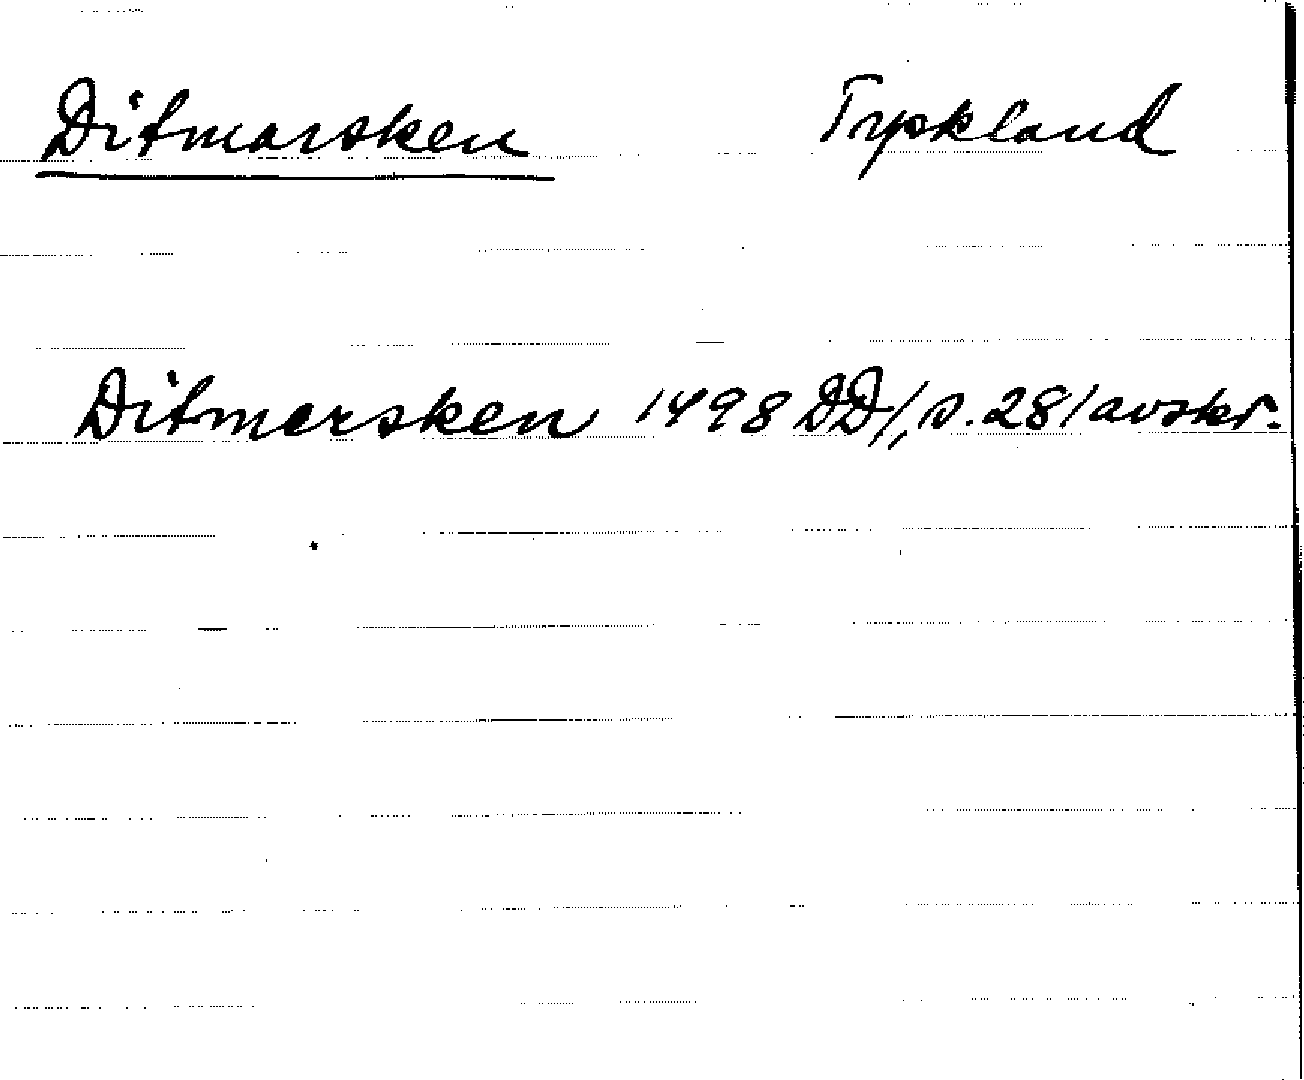 Ditmarsken Tyskland
Ditmersken 1498 DD/, s. 28/avskr.